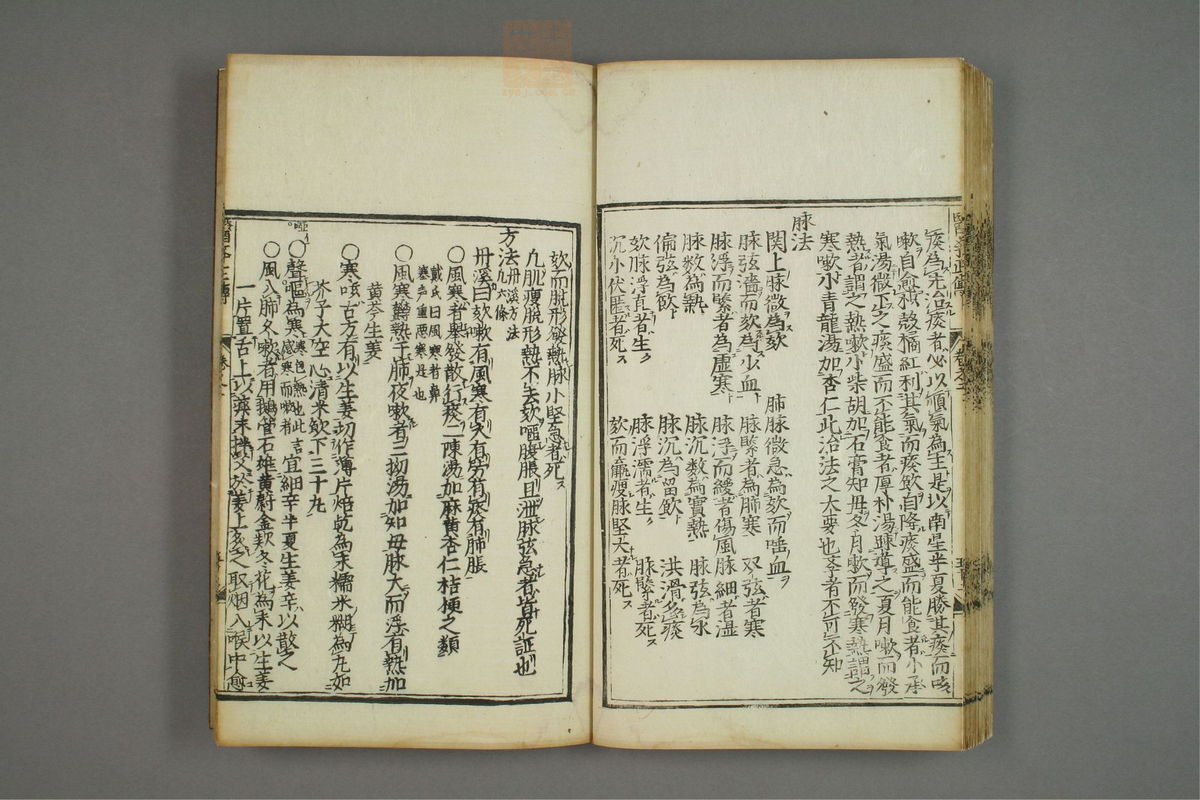 痰為先治痰者必以順氣為主是以南星半夏勝其痰而咳
嗽自愈枳殼橘紅利其氣而痰飲自降痰盛而能食者小承
氣湯微下之痰盛而不能食者厚朴湯疎導之夏月嗽而發
熱者謂之熱嗽小柴胡加石膏知母冬月嗽而發寒熱謂之
寒嗽小青龍湯加杏仁此治法之大要也學者不可不知
脉法
関上脉微為咳 肺脉微急為咳而唾血
脉弦濇而咳為少血 脉緊者為肺寒 双弦者寒
脉浮而緊者為虛寒 脉浮而緩者傷風 脉細者濕
脉数為熱 脉沉数為實熱 脉弦為水
偏弦為飲 脉沉為留飲 洪滑多痰
咳脉浮直者生 脉浮濡者生 脉緊者死
沉小伏匿者死 咳而羸瘦脉堅大者死
咳而脱形發熱脉小堅急者死
凡肌瘦脱形熱不去咳嘔腹脹且泄脉弦急者皆死証也
方法丹溪方法凡六條
丹溪曰咳嗽有風寒有火有勞有痰有肺脹
○風寒者舉發散行痰二陳湯加麻黄杏仁桔梗之類
戴氏曰風寒者鼻
寒声重惡寒是也
○風寒欝熱于肺夜嗽者三拗湯加知母脉大而浮有熱加
黄芩生姜
○寒嗽古方有以生姜切作薄片焙乾為末糯米糊為丸如
芥子大空心清米飲下三十丸
○聲嘔為寒寒包熱也此言感寒而嗽者宜細辛半夏生姜辛以散之
○風入肺久嗽者用鵝管石雄黄蔚金款冬花為末以生姜
一片置舌上以藥末摻艾於姜上灸之取烟入喉中愈